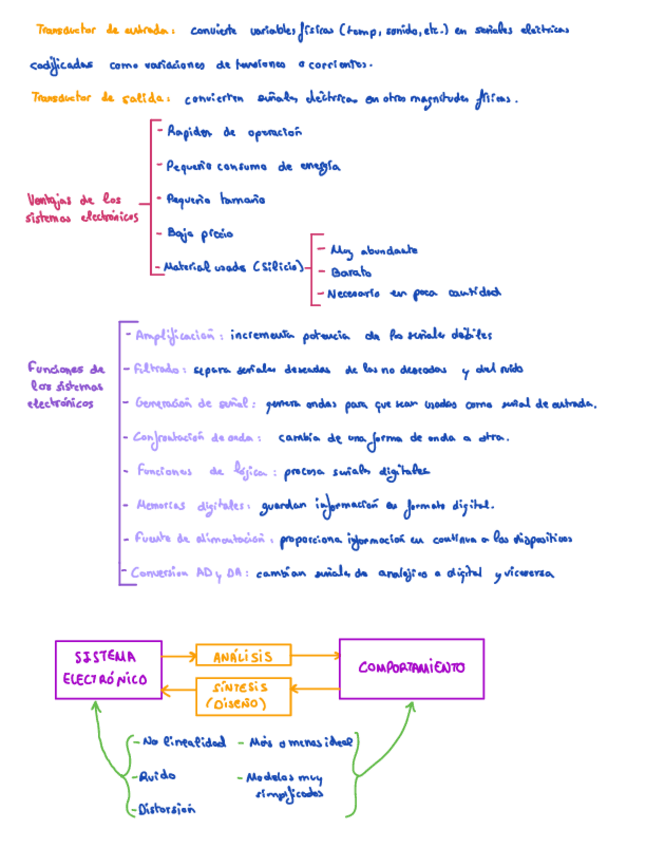 Transductor de entrada: convierte variables físicas (temp, sonido, etc.) en señales eléctricas
codificadas como variaciones de tensiones o corrientes.
Transductor de salida: convierten señales eléctricas en otras magnitudes físicas.
Ventajas de los
sistemas electrónicos
- Rapidez de operación
- Pequeño consumo de energía
- Pequeño tamaño
- Bajo precio
- Material usado (Silicio)
- Muy abundante
- Barato
- Necesario en poca cantidad
Funciones de
los sistemas
electrónicos
- Amplificación: incrementa potencia de las señales débiles
- Filtrado: separa señales deseadas de las no deseadas y del ruido
- Generación de señal: genera ondas para que sean usadas como señal de entrada.
- Conformación de onda: cambia de una forma de onda a otra.
- Funciones de lógica: procesa señales digitales
- Memorias digitales: guardan información en formato digital.
- Fuente de alimentación: proporciona información en continua a los dispositivos
- Conversion AD y DA: cambian señales de analógico a digital y viceversa
SISTEMA
ELECTRÓNICO
ANÁLISIS
SÍNTESIS
(DISEÑO)
COMPORTAMIENTO
- No linealidad
- Ruido
- Distorsion
- Más o menos ideal
- Modelos muy
simplificados